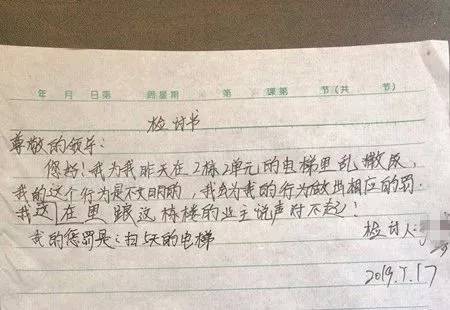 年 月 日 第 周星期 第 课第 节(共 节)
检讨书
尊敬的领导:
您好!我为我昨天在2栋2单元的电梯里乱撒尿,
我的这个行为是不文明的,我会为我的行为做出相应的罚.
我这在里跟这栋楼的业主说声对不起!
我的惩罚是:扫5天的电梯
检讨人:
2019.7.17